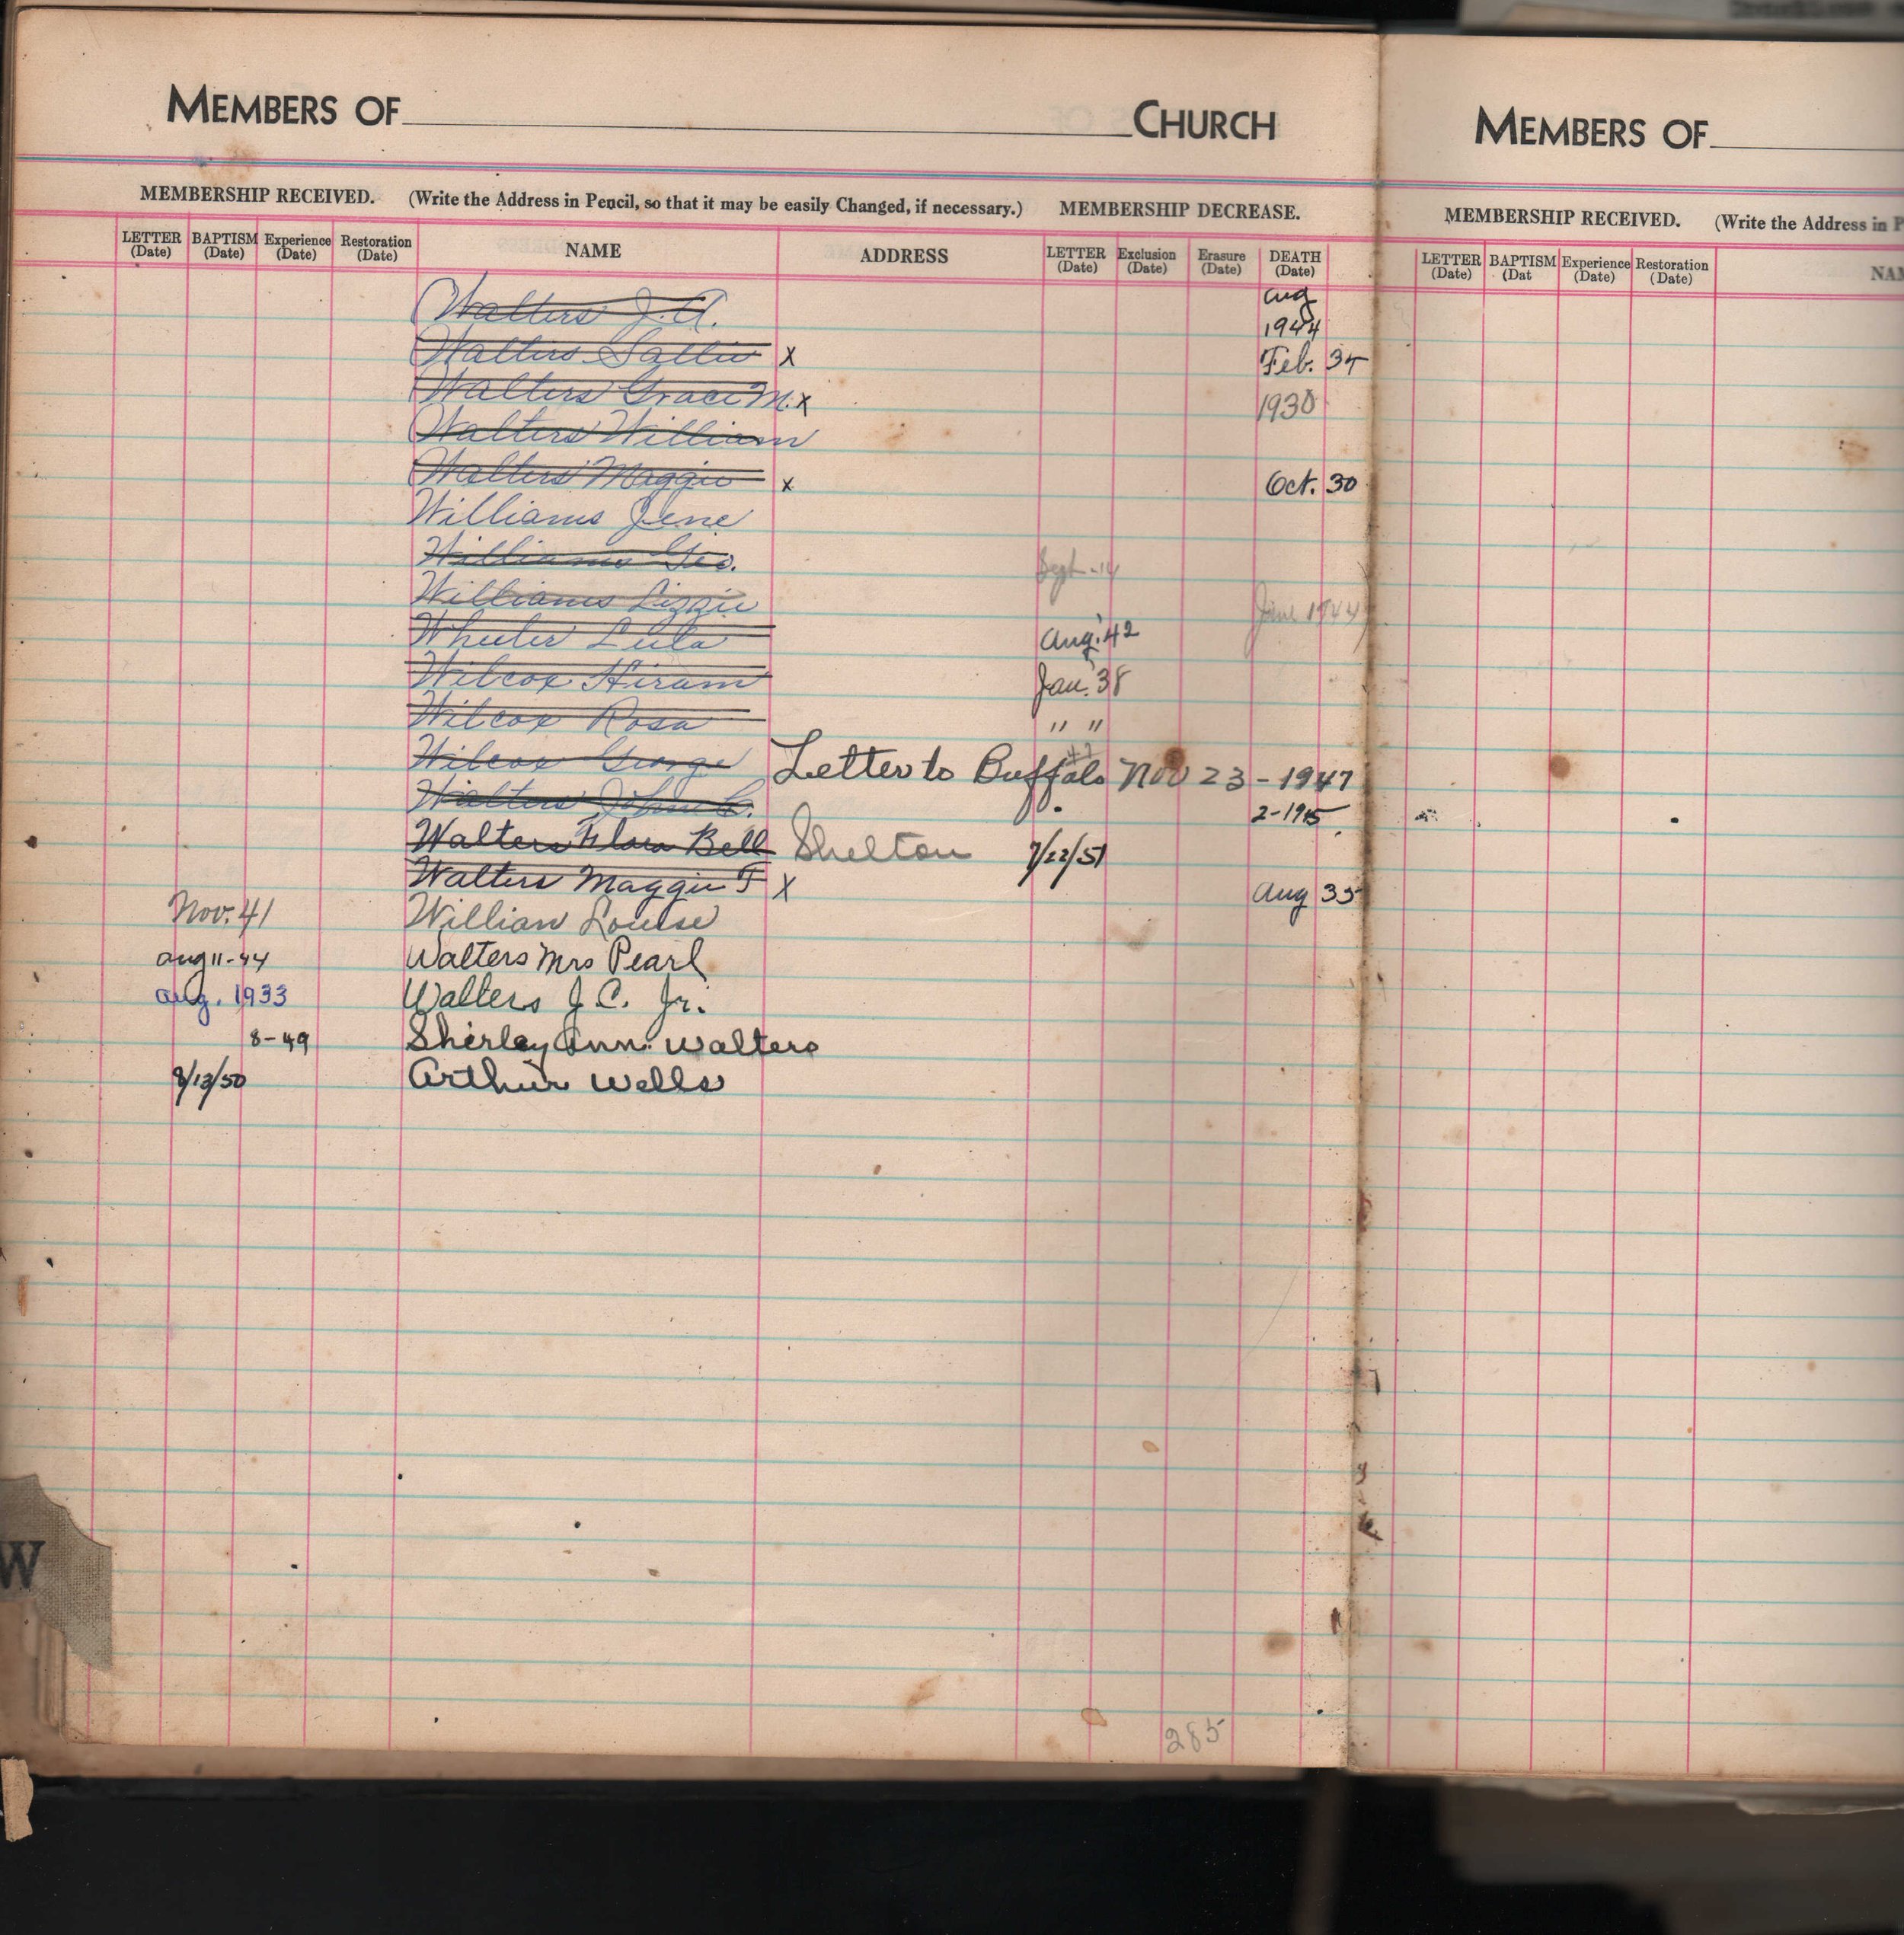 MEMBERS OF CHURCH
MEMBERSHIP RECEIVED. (Write the Address in Pencil, so that it may be easily Changed, if necessary.) MEMBERSHIP DECREASE.
LETTER (Date) BAPTISM (Date) Experience (Date) Restoration (Date) NAME ADDRESS LETTER (Date) Exclusion (Date) Erasure (Date) DEATH (Date)
Walters J. A. Aug 1944
Walters Sallie x Feb. 34
Walters Grace M. x 1930
Walters William
Walters Maggie x Oct. 30
Williams Jene
Williams Geo. Sept-14
Williams Lizzie June 1944
Wheeler Lula Aug. '42
Wilcox Hiram Jan. '38
Wilcox Rosa " "
Wilcox George Letter to Buffalo Nov 23-1947
Walters John C. 2-1945
Walters Flora Bell Shelton 7/22/51
Walters Maggie T x Aug 35
Nov. 41 William Louise
Aug 11-44 Walters Mrs Pearl
Aug. 1933 Walters J. C. Jr.
8-49 Shirley Ann Walters
8/13/50 Arthur Wells
285
W
MEMBERS OF
MEMBERSHIP RECEIVED. (Write the Address in P
LETTER (Date) BAPTISM (Dat Experience (Date) Restoration (Date) NAM